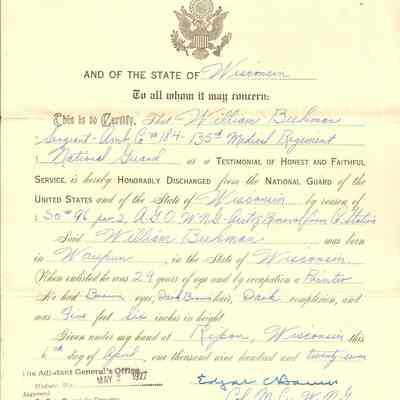 AND OF THE STATE OF Wisconsin
To all whom it may concern:
This is to Certify, That William Beekman
Sergeant - Amb. Co #184 - 135th Medical Regiment
National Guard as a TESTIMONIAL OF HONEST AND FAITHFUL
SERVICE, is hereby HONORABLY DISCHARGED from the NATIONAL GUARD of the
UNITED STATES and of the STATE OF Wisconsin by reason of
SO #96 par 2, A.G.O. W.N.G. removal from
Said William Beekman was born
in Waupun, in the State of Wisconsin
When enlisted he was 29 years of age and by occupation a Painter
He had Brown eyes, Dark Brown hair, Dark complexion, and
was Five feet Six inches in height
Given under my hand at Ripon, Wisconsin this
6th day of April, one thousand nine hundred and twenty-seven
The Adjutant General's Office.
Madison, Wis. MAY 2 1927
Approved
Edgar
Col. M.C. W.N.G.